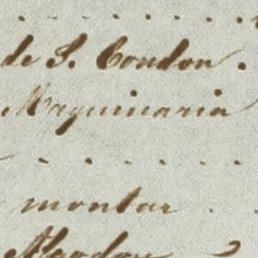 de S. Condon.
Maquinaria
montar